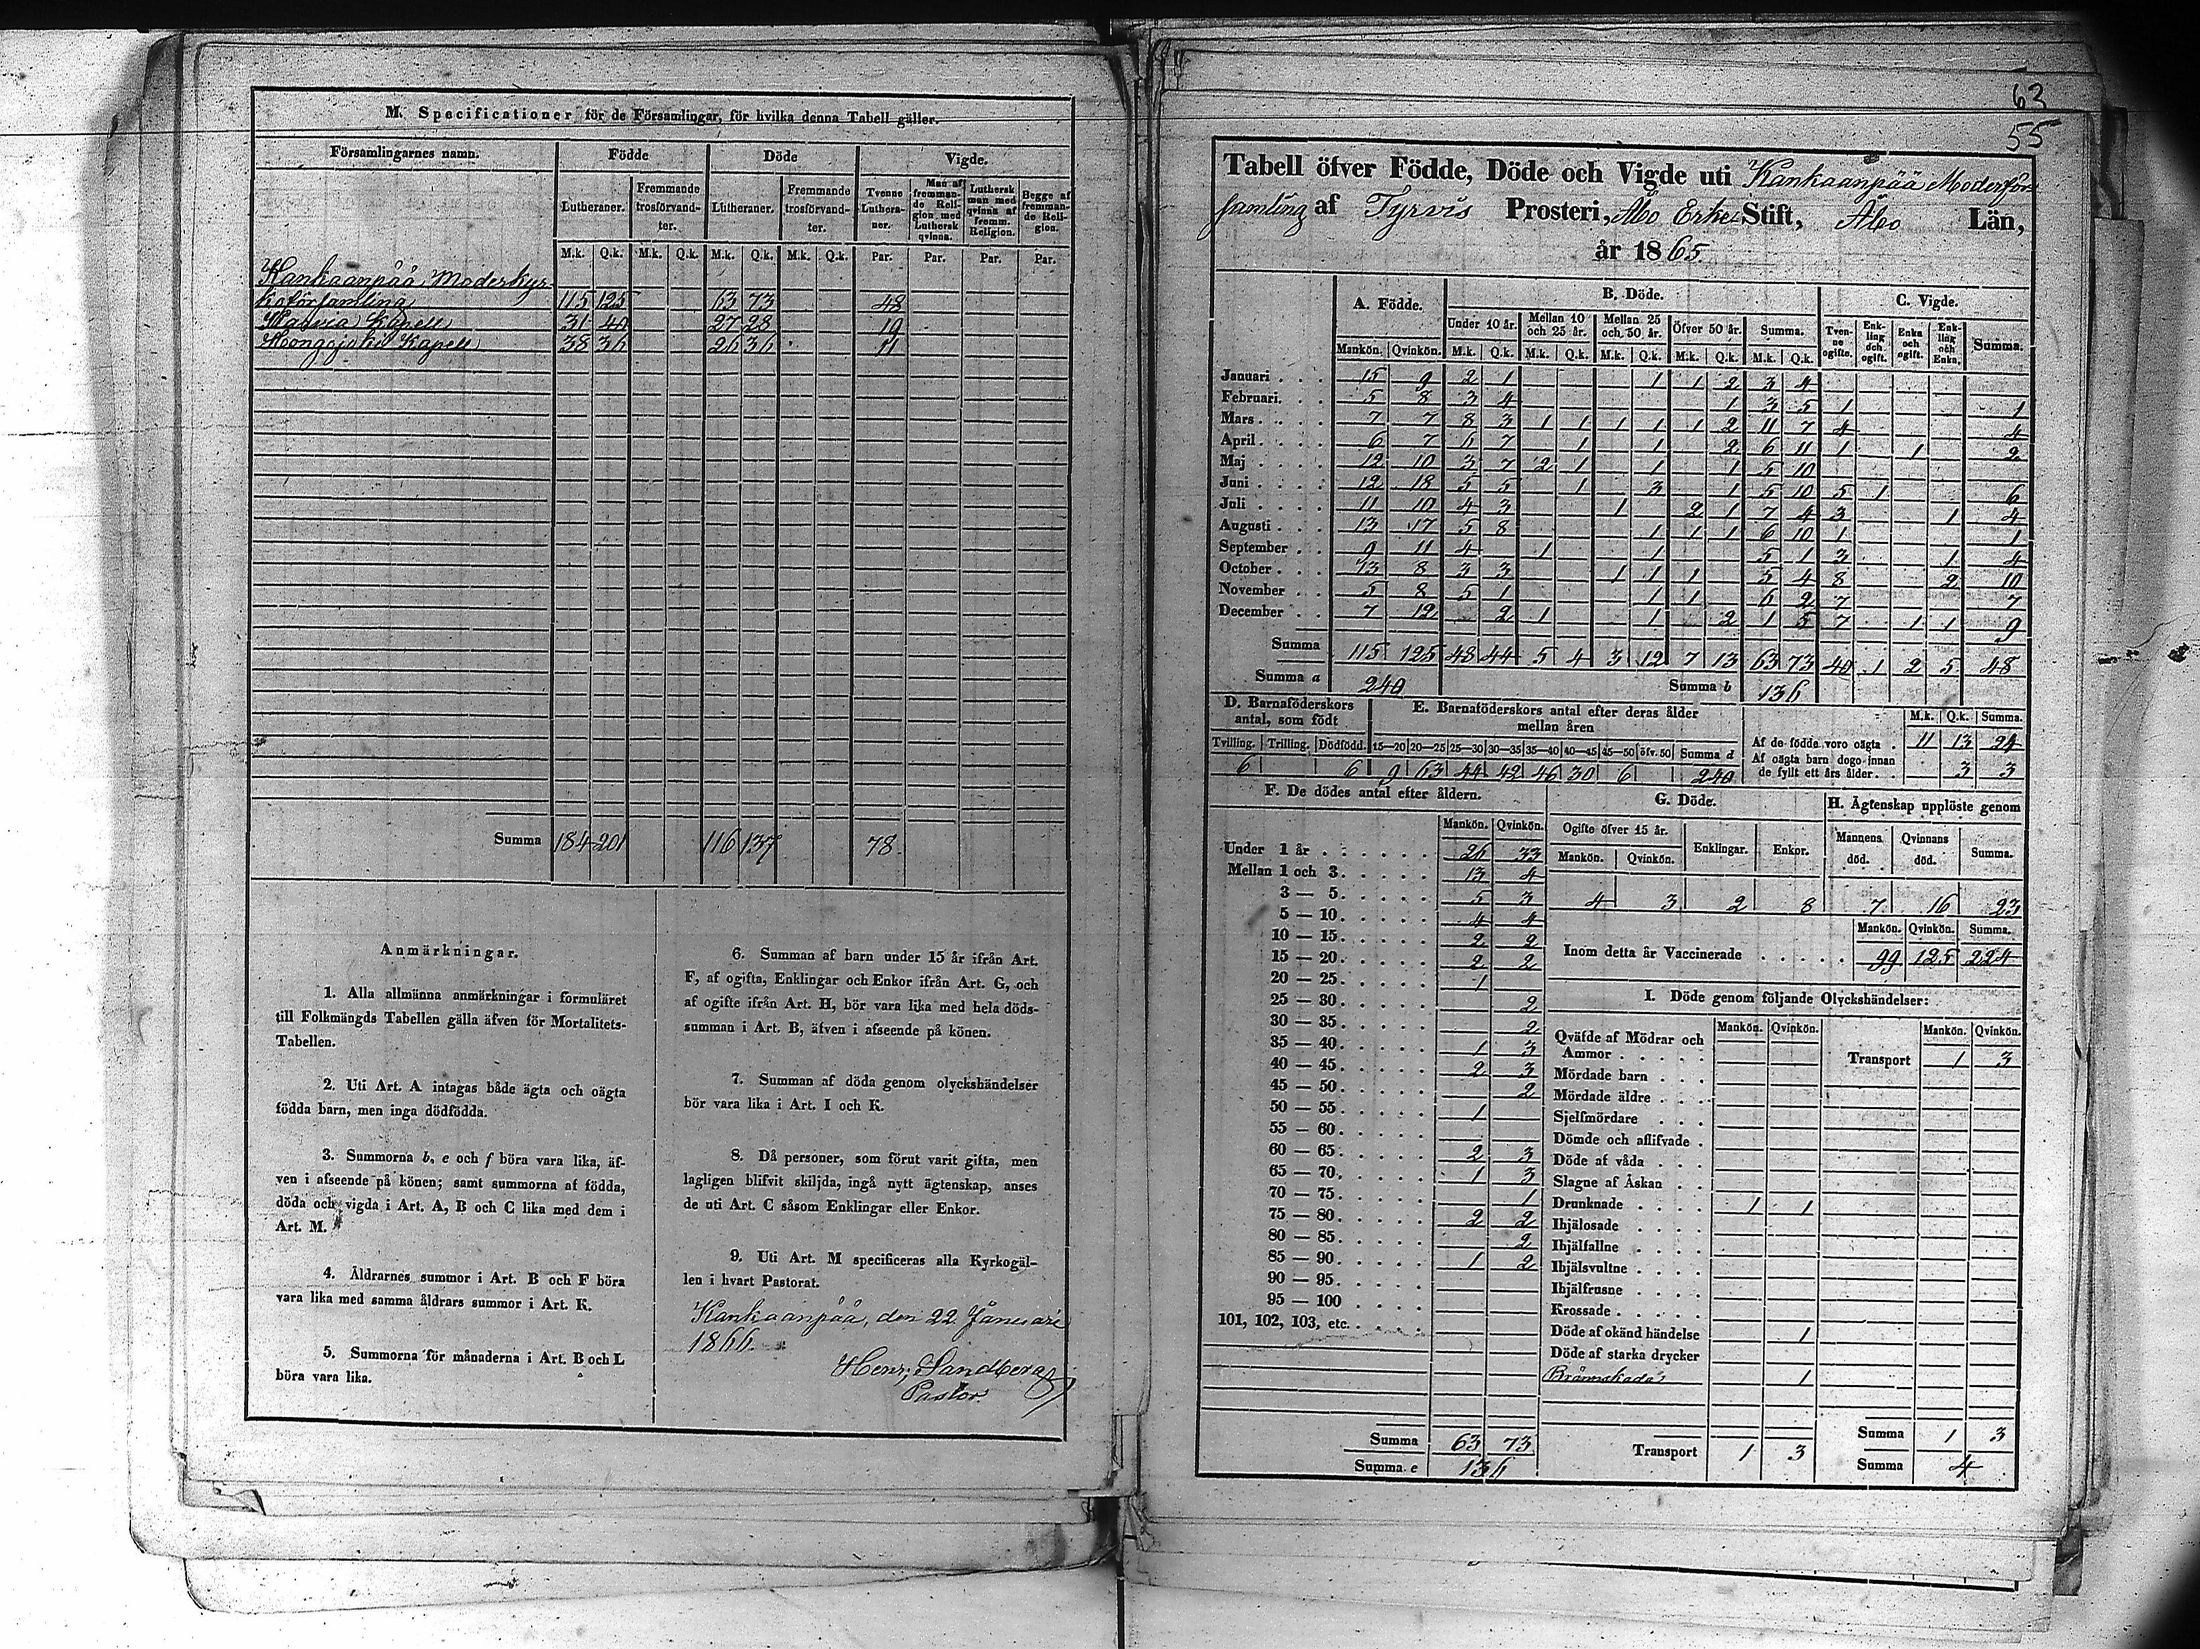 M. Specificationer för de Församlingar, för hvilka denna Tabell gäller.
Församlingarnes namn. Födde Döde Vigde.
Lutheraner. Fremmande trosförvandter. Lutheraner. Fremmande trosförvandter. Tvenne Lutheraner. Man af fremmande Religion med Luthersk qvinna. Luthersk man med qvinna af fremm. Religion. Begge af fremmande Religion.
M.k. Q.k. M.k. Q.k. M.k. Q.k. M.k. Q.k. Par. Par. Par. Par.
Kankaanpää Moderkyr-
koförsamling 115 125 63 73 48
Karvia Kapell 31 40 27 28 19
Honggjoki Kapell 38 36 26 36 11
Summa 184 201 116 137 78
Anmärkningar.
1. Alla allmänna anmärkningar i formuläret
till Folkmängds Tabellen gälla äfven för Mortalitets-
Tabellen.
2. Uti Art. A intagas både ägta och oägta
födda barn, men inga dödfödda.
3. Summorna b, e och f böra vara lika, äf-
ven i afseende på könen; samt summorna af födda,
döda och vigda i Art. A, B och C lika med dem i
Art. M.
4. Åldrarnes summor i Art. B och F böra
vara lika med samma åldrars summor i Art. K.
5. Summorna för månaderna i Art. B och L
böra vara lika.
6. Summan af barn under 15 år ifrån Art.
F, af ogifta, Enklingar och Enkor ifrån Art. G, och
af ogifte ifrån Art. H, bör vara lika med hela döds-
summan i Art. B, äfven i afseende på könen.
7. Summan af döda genom olyckshändelser
bör vara lika i Art. I och K.
8. Då personer, som förut varit gifta, men
lagligen blifvit skiljda, ingå nytt ägtenskap, anses
de uti Art. C såsom Enklingar eller Enkor.
9. Uti Art. M specificeras alla Kyrkogäl-
len i hvart Pastorat.
Kankaanpää, den 22 Januari
1866.
Henr. Sandberg
Pastor.
63
55
Tabell öfver Födde, Döde och Vigde uti Kankaanpää Moderför-
samling af Tyrvis Prosteri, Åbo Erke Stift, Åbo Län,
år 1865.
A. Födde. B. Döde. C. Vigde.
Under 10 år. Mellan 10 och 25 år. Mellan 25 och 50 år. Öfver 50 år. Summa. Tvenne ogifte. Enkling och ogift. Enka och ogift. Enkling och Enka. Summa.
Mankön. Qvinkön. M.k. Q.k. M.k. Q.k. M.k. Q.k. M.k. Q.k. M.k. Q.k.
Januari 15 9 2 1 1 1 2 3 4
Februari 5 8 3 4 1 3 5 1 1
Mars 7 7 8 3 1 1 1 1 1 2 11 7 4 4
April 6 7 6 7 1 1 2 6 11 1 1 2
Maj 12 10 3 7 2 1 1 1 5 10
Juni 12 18 5 5 1 3 1 5 10 5 1 6
Juli 11 10 4 3 1 2 1 7 4 3 1 4
Augusti 13 17 5 8 1 1 1 6 10 1 1
September 9 11 4 1 1 5 1 3 1 4
October 13 8 3 3 1 1 1 5 4 8 2 10
November 5 8 5 1 1 1 6 2 7 7
December 7 12 2 1 1 2 1 5 7 1 1 9
Summa 115 125 48 44 5 4 3 12 7 13 63 73 40 1 2 5 48
Summa a 240 Summa b 136
D. Barnaföderskors antal, som födt
Tvilling. Trilling. Dödfödd.
6 6
E. Barnaföderskors antal efter deras ålder mellan åren
15—20 20—25 25—30 30—35 35—40 40—45 45—50 öfv. 50 Summa d
9 63 44 42 46 30 6 240
M.k. Q.k. Summa.
Af de födde voro oägta 11 13 24
Af oägta barn dogo innan
de fyllt ett års ålder 3 3
F. De dödes antal efter åldern.
Mankön. Qvinkön.
Under 1 år 26 33
Mellan 1 och 3 13 4
3 — 5 5 3
5 — 10 4 4
10 — 15 2 2
15 — 20 2 2
20 — 25 1
25 — 30 2
30 — 35 2
35 — 40 1 3
40 — 45 2 3
45 — 50 2
50 — 55 1
55 — 60
60 — 65 2 3
65 — 70 1 3
70 — 75 1
75 — 80 2 2
80 — 85 2
85 — 90 1 2
90 — 95
95 — 100
101, 102, 103, etc.
Summa 63 73
Summa e 136
G. Döde.
Ogifte öfver 15 år. Enklingar. Enkor.
Mankön. Qvinkön.
4 3 2 8
H. Ägtenskap upplöste genom
Mannens död. Qvinnans död. Summa.
7 16 23
Mankön. Qvinkön. Summa.
Inom detta år Vaccinerade 99 125 224
I. Döde genom följande Olyckshändelser:
Mankön. Qvinkön. Mankön. Qvinkön.
Qväfde af Mödrar och
Ammor
Transport 1 3
Mördade barn
Mördade äldre
Sjelfmördare
Dömde och aflifvade
Döde af våda
Slagne af Åskan
Drunknade 1 1
Ihjälosade
Ihjälfallne
Ihjälsvultne
Ihjälfrusne
Krossade
Döde af okänd händelse 1
Döde af starka drycker
Brännskada 1
Transport 1 3
Summa 1 3
Summa 4